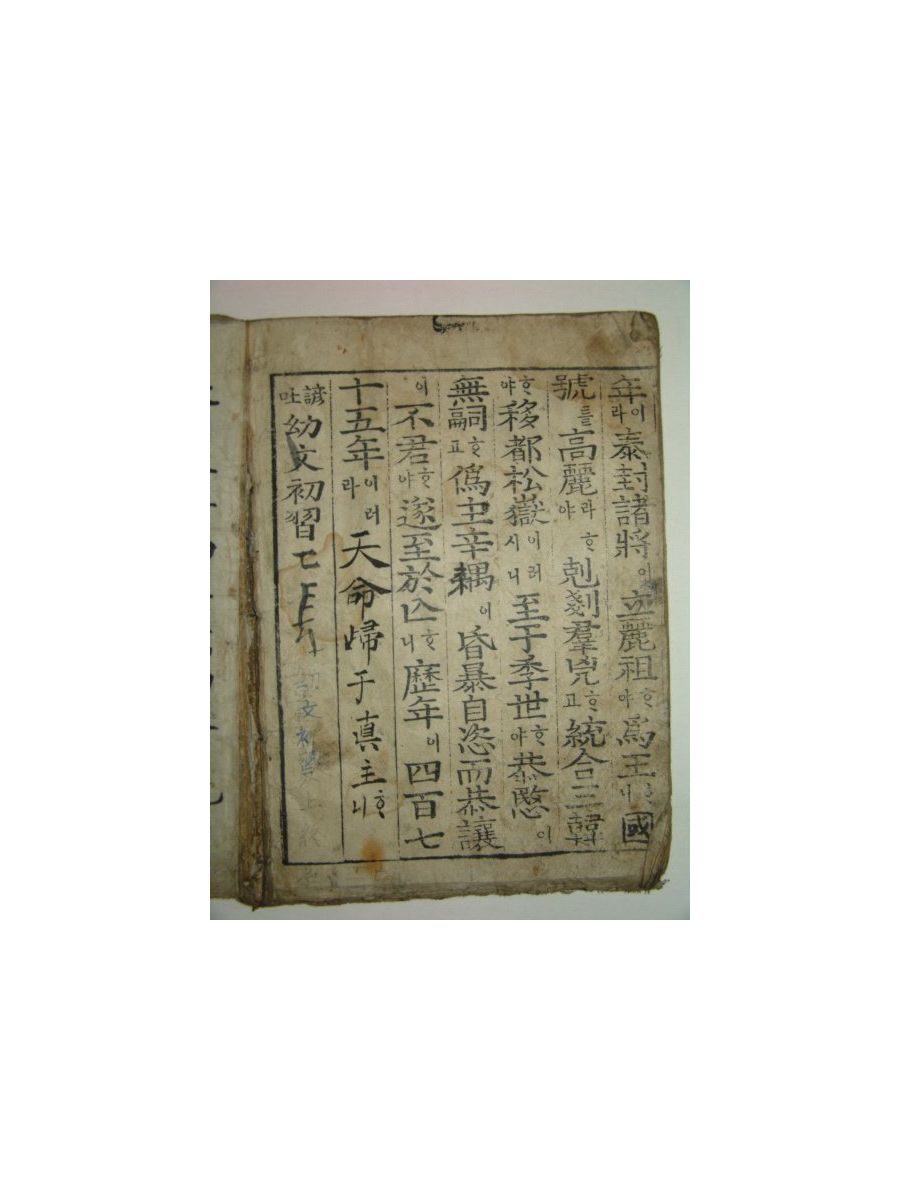 年이라泰封諸將이立麗祖ᄒᆞ야爲王ᄒᆞ니國
號를高麗라ᄒᆞ야剋剗羣兇ᄒᆞ고統合三韓
ᄒᆞ야移都松嶽이러시니至于季世ᄒᆞ야恭愍이
無嗣ᄒᆞ고僞主辛耦이昏暴自恣而恭讓
이不君ᄒᆞ야遂至於亾ᄒᆞ니歷年이四百七
十五年이러라天命歸于真主ᄒᆞ니
諺吐幼文初習